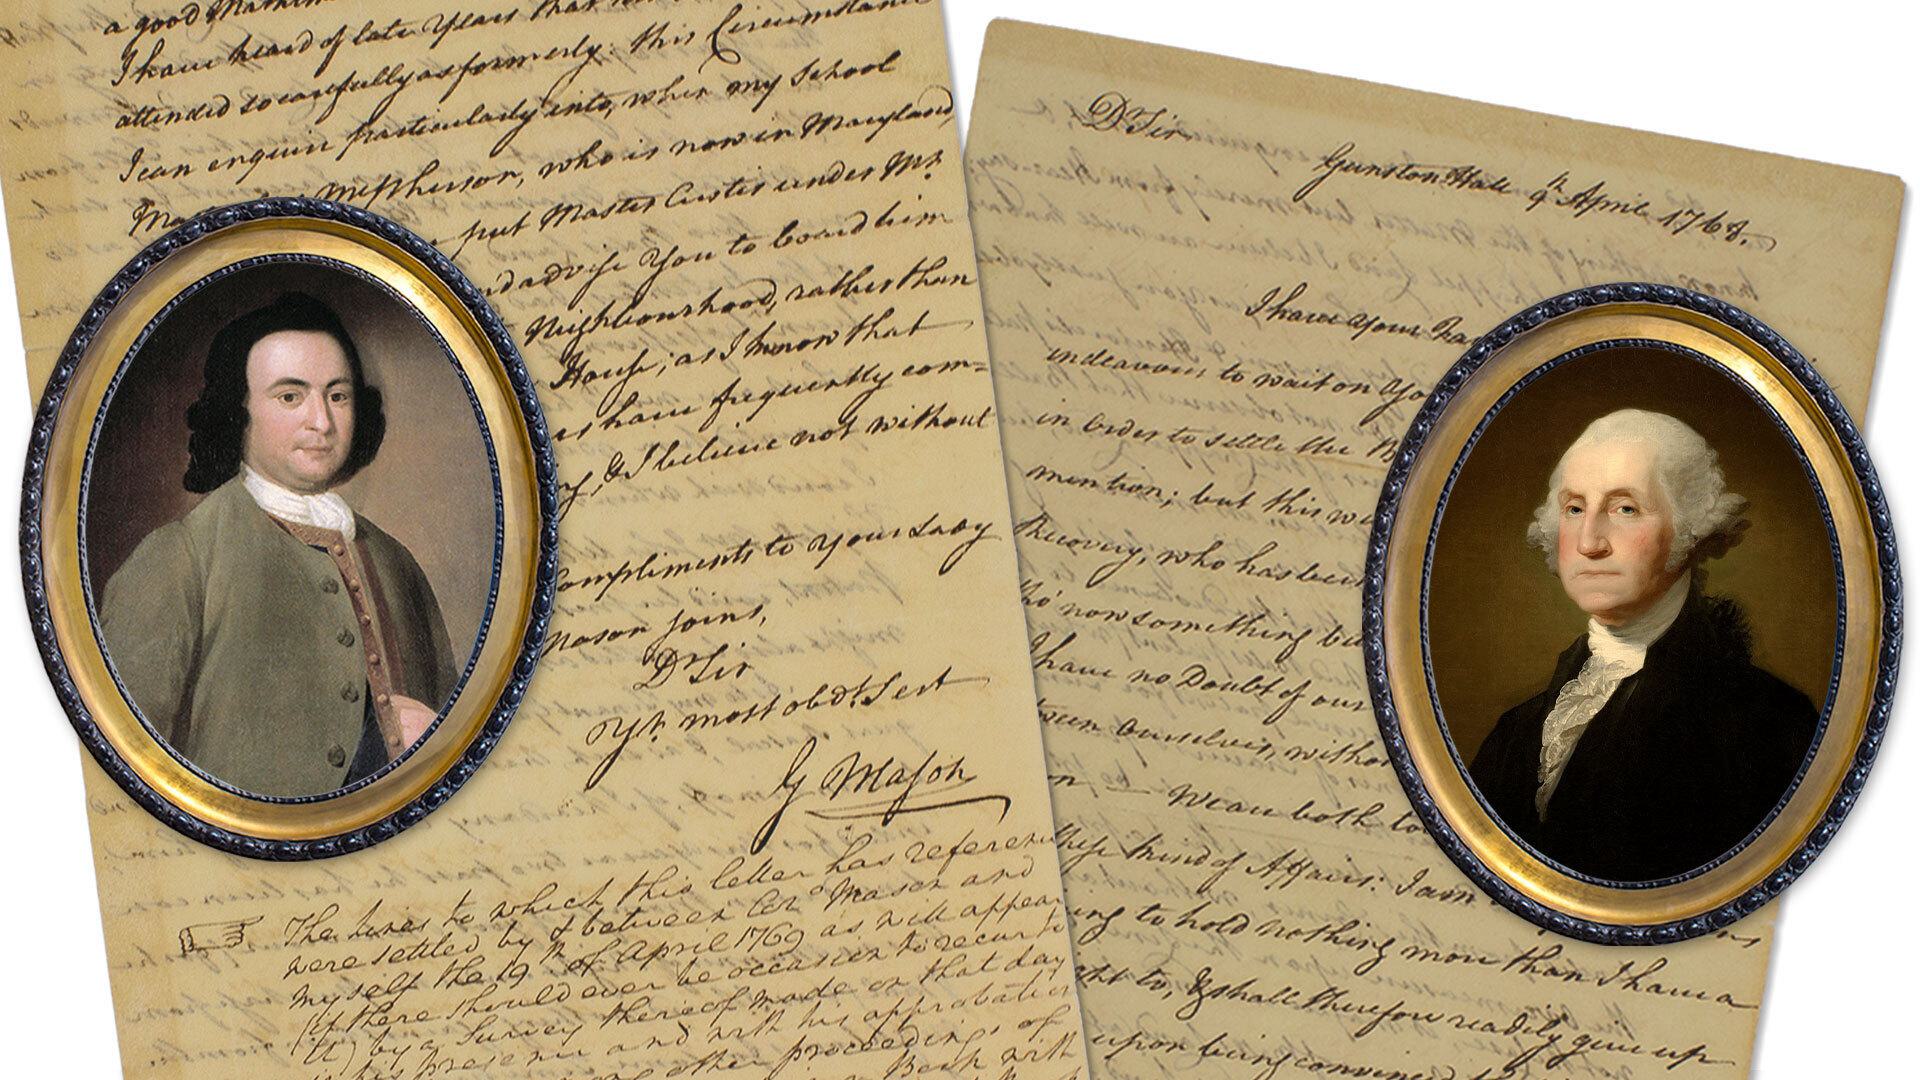 a good Mathem
I have heard of late Years that
attended to carefully as formerly: this Circumstance
I can enquire particularly into, when my School
Mcpherson, who is now in Maryland,
put Master Custis under Mr.
nd advise You to board him
Neighbourhood, rather than
House; as I know that
rs have frequently com=
, & I believe not without
ompliments to Your Lady
Mason joins,
Dr Sir
Yr. most obdt. Sert
G Mason
The lines to which this letter has referenc
were settled by & between Colo Mason and
myself the 19th of April 1769 as will appear
(if there should ever be occasion to recur to
it) by a Survey thereof made on that day
in his presence and with his approbation
other proceedings of
Both with
Dr Sir
Gunston Hall 9th April 1768.
I have Your Fa
indeavour to wait on Yo
in Order to settle the B
mention; but this wi
Recovery, who has been
tho' now something be
I have no Doubt of our
tween Ourselves, witho
n — We are both to
these kind of Affairs: I am
ing to hold nothing more than I have a
ght to, & shall therefore readily give up
upon being convinced